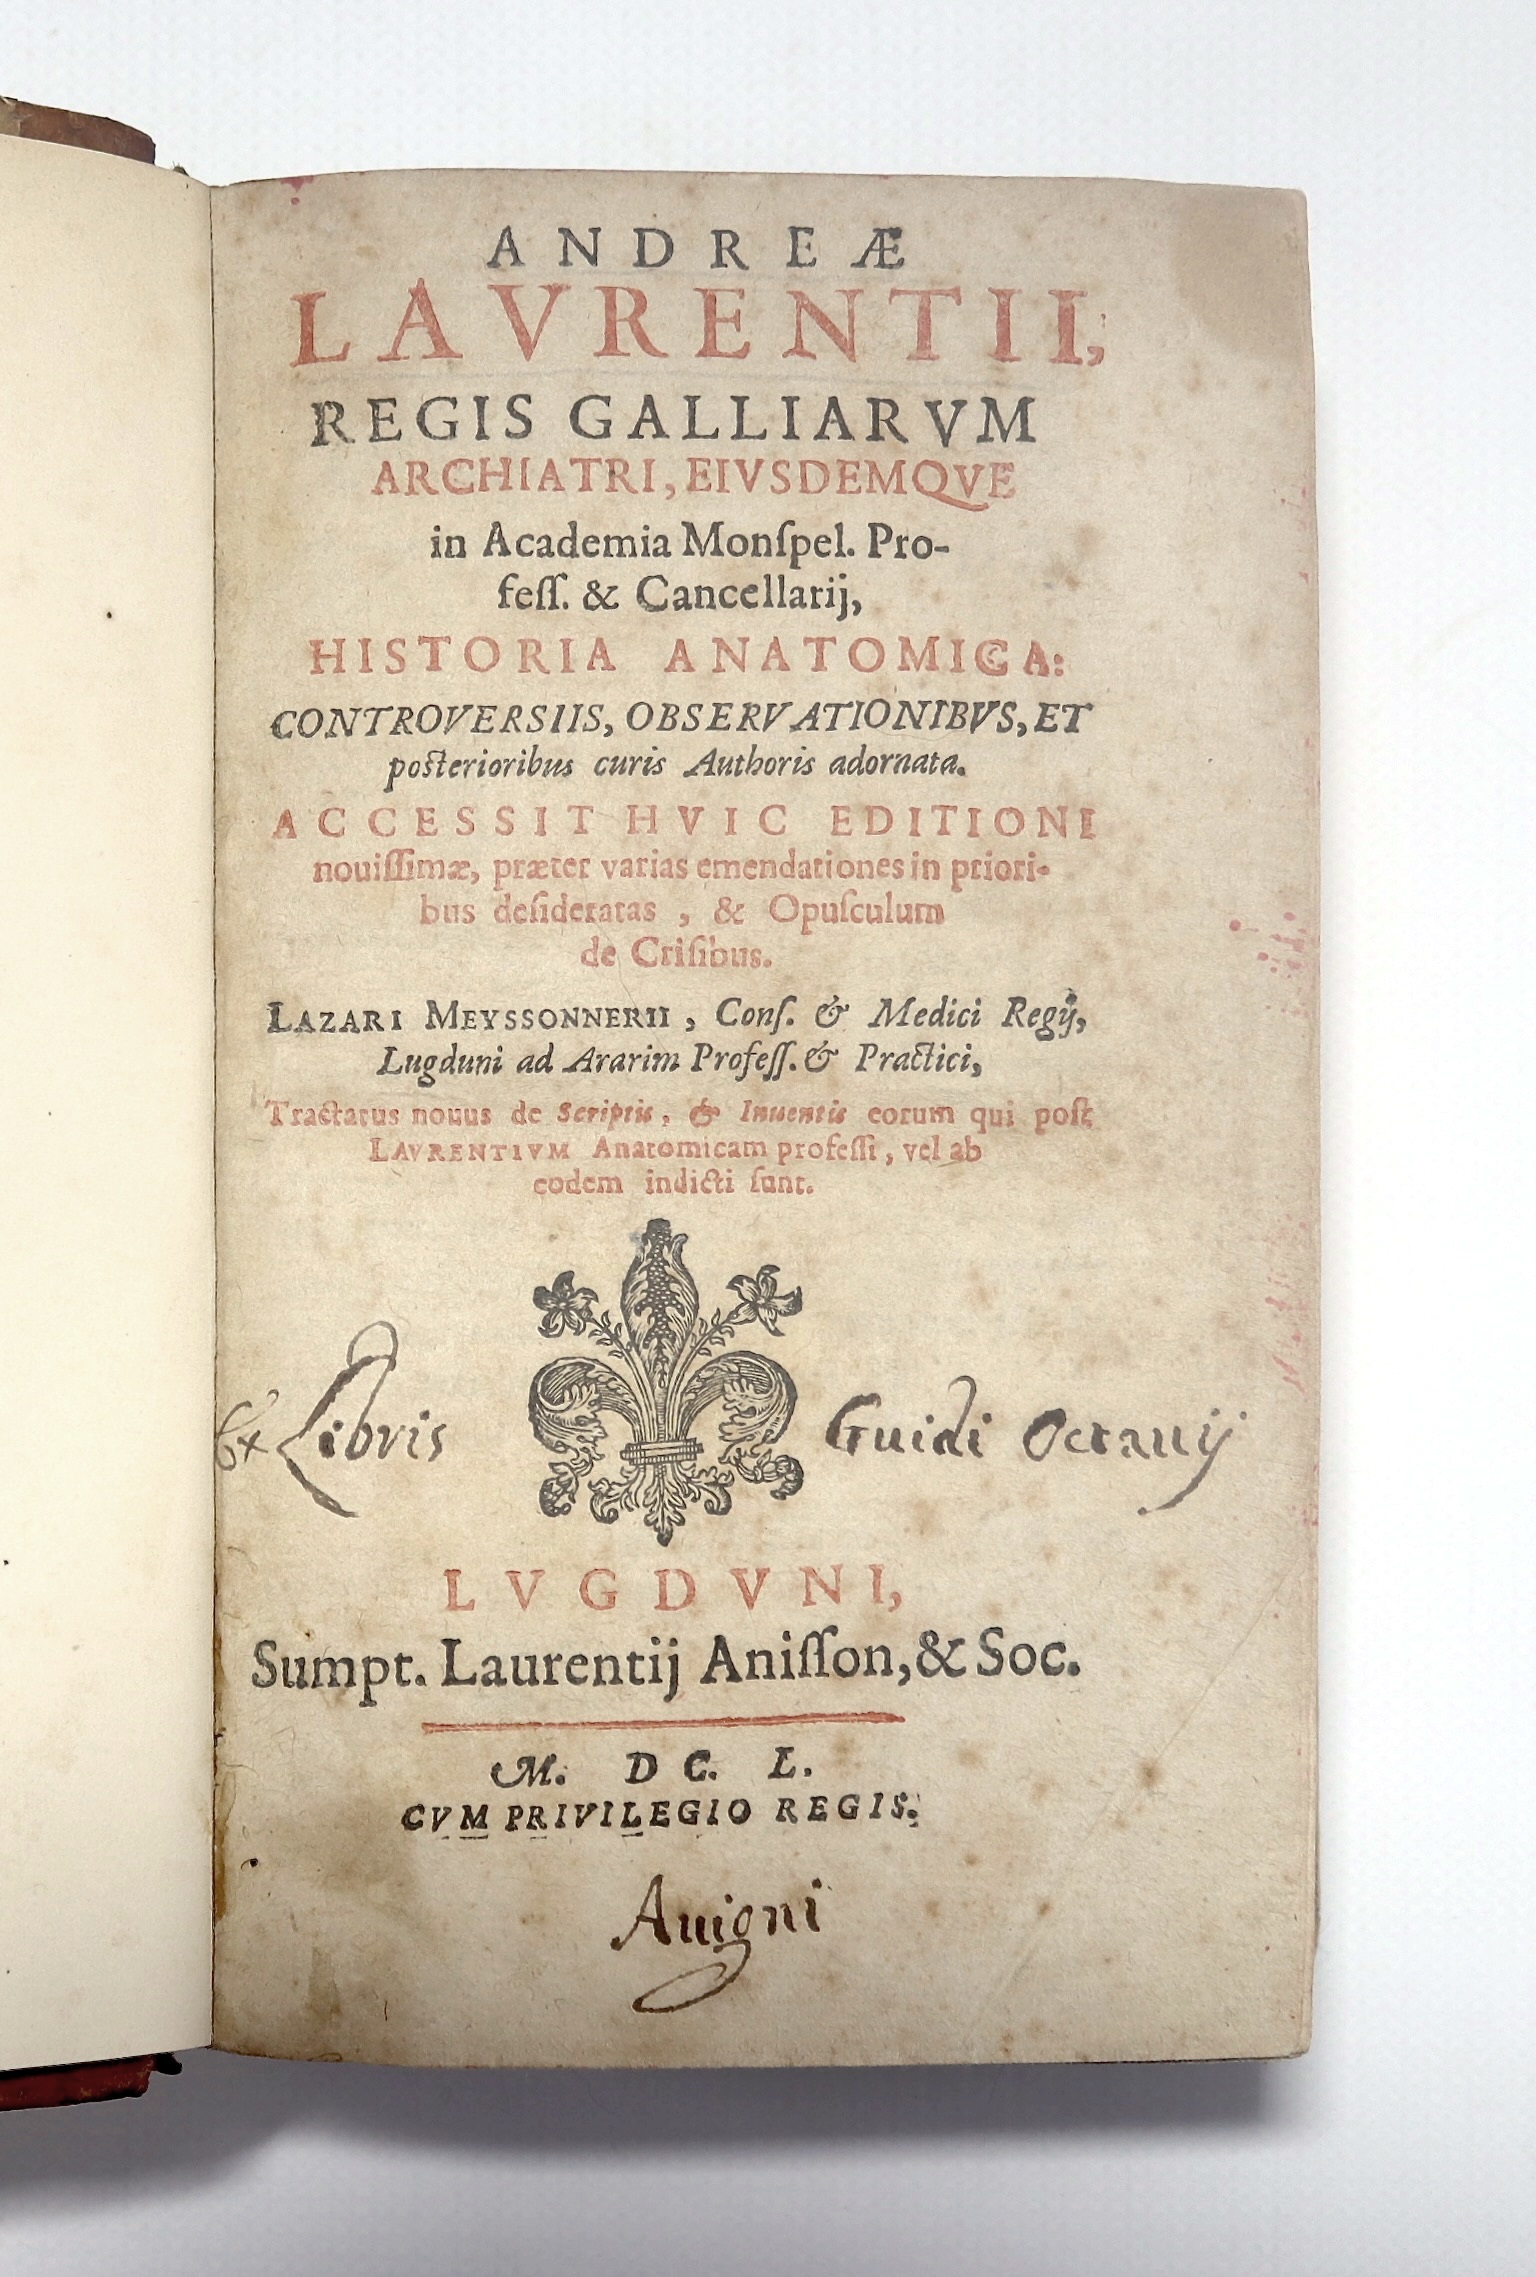 ANDREÆ
LAVRENTII,
REGIS GALLIARVM
ARCHIATRI, EIVSDEMQVE
in Academia Monſpel. Pro-
feſſ. & Cancellarij,
HISTORIA ANATOMICA:
CONTROVERSIIS, OBSERVATIONIBVS, ET
posterioribus curis Authoris adornata.
ACCESSIT HVIC EDITIONI
nouiſſimæ, præter varias emendationes in priori-
bus deſideratas, & Opuſculum
de Criſibus.
LAZARI MEYSSONNERII, Conſ. & Medici Regij,
Lugduni ad Ararim Profeſſ. & Practici,
Tractatus nouus de Scriptis, & Inuentis eorum qui post
LAVRENTIVM Anatomicam profeſſi, vel ab
eodem indicti ſunt.
Ex Libris Guidi Octauij
LVGDVNI,
Sumpt. Laurentij Aniſſon, & Soc.
M. DC. L.
CVM PRIVILEGIO REGIS.
Auigni